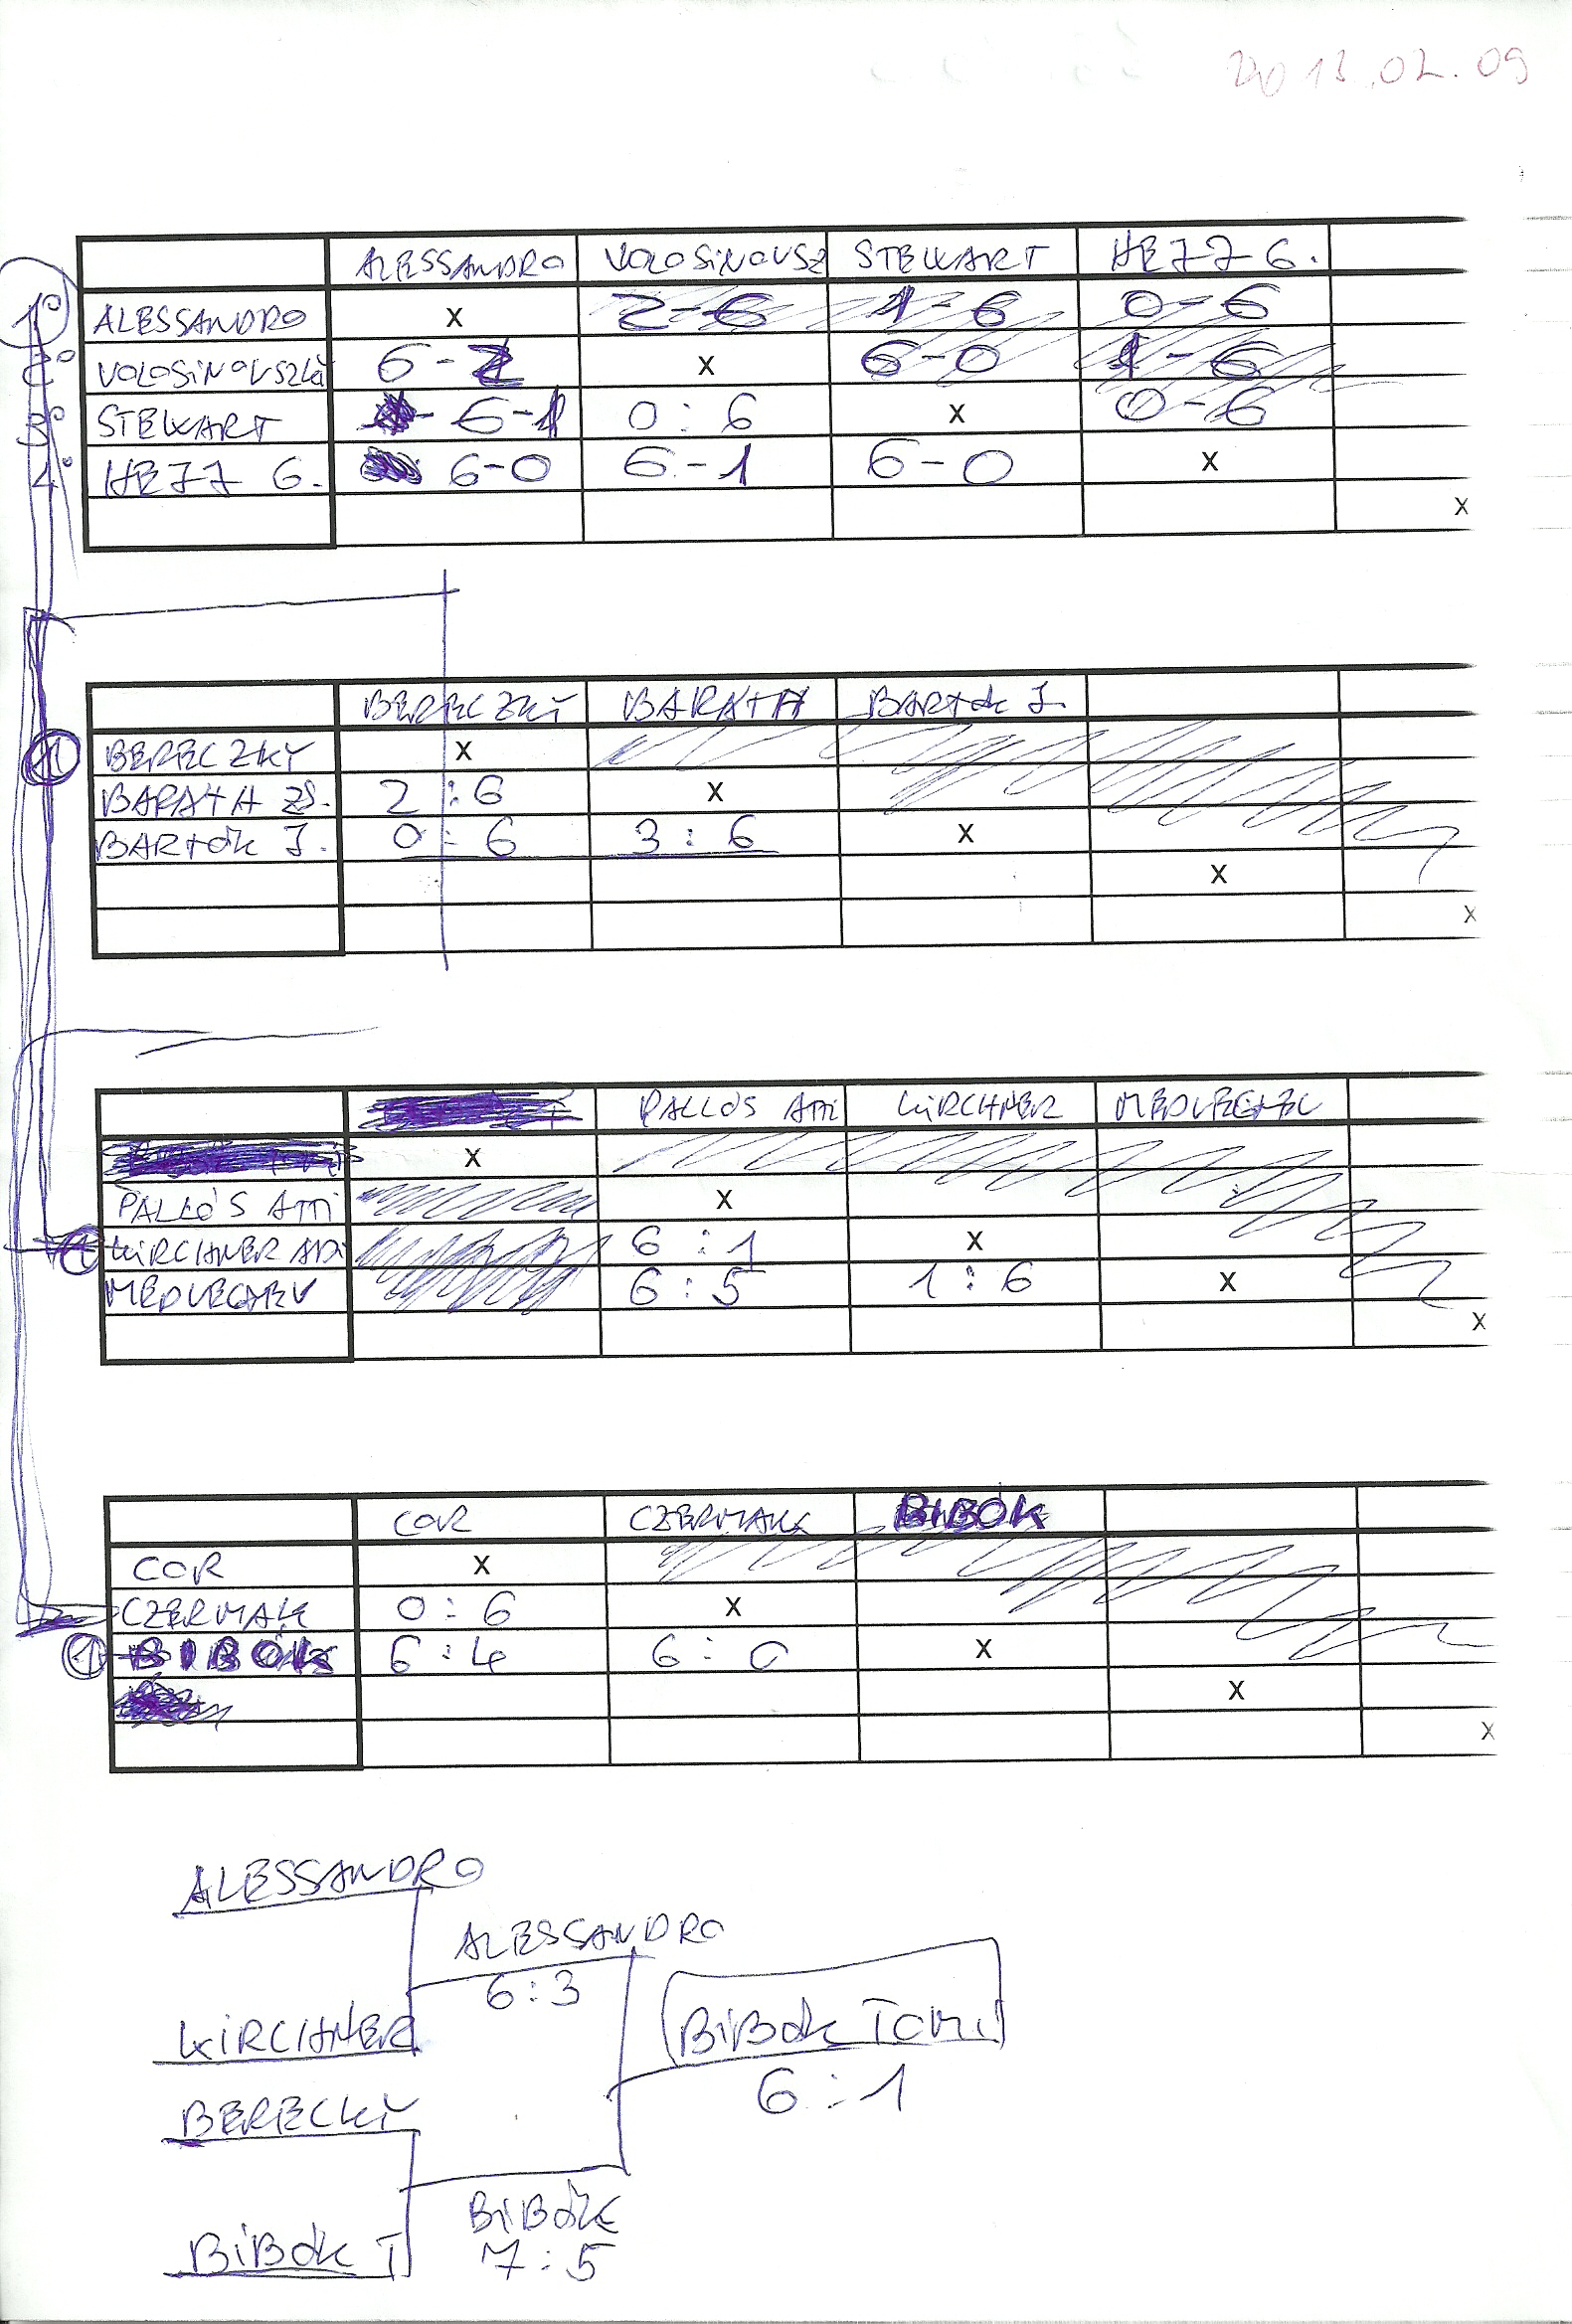 2013.02.09
ALESSANDRO VOLOSINOVSZ STEWART HEJJ G.
1° ALESSANDRO x 2-6 1-6 0-6
2° VOLOSINOVSZKI 6-2 x 6-0 1-6
3° STEWART 6-1 0:6 x 0-6
4° HEJJ G. 6-0 6-1 6-0 x
x
BERECZKY BARATH BARTÓK J.
1 BERECZKY x
BARATH ZS. 2:6 x
BARTÓK J. 0:6 3:6 x
x
x
PALLÓS ATTI KIRCHNER
x
PALLÓS ATTI x
1 KIRCHNER ADI 6:1 x
6:5 1:6 x
x
COR CZERMAK BIBÓK
COR x
CZERMAK 0:6 x
1 BIBÓK 6:4 6:0 x
x
x
ALESSANDRO
ALESSANDRO
6:3
KIRCHNER
BIBÓK TOMI
6:1
BERECKY
BIBÓK
BIBÓK T
7:5